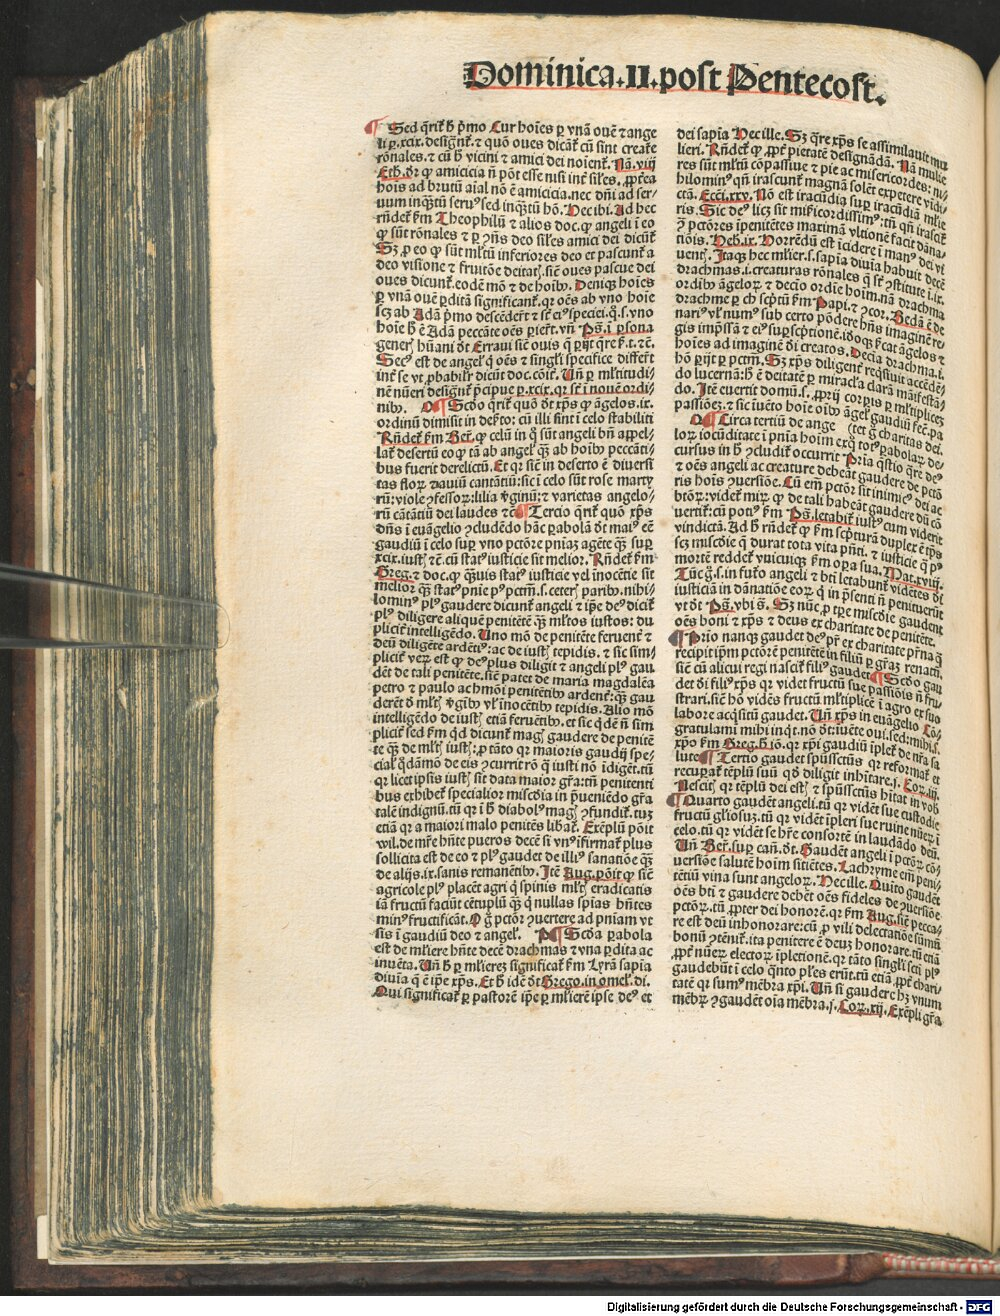 Dominica.II.post Pentecost.
Sed q̄rit̄ h̄ p̄mo Cur hoīes ꝑ vnā ouē ⁊ ange
li ꝑ.xcix.designēt̄.⁊ quō oues dicāt̄ cū sint create
rōnales.⁊ cū h̄ vicini ⁊ amici dei noient̄. Na̅.viij
Eth̄.dr̄ ꝙ amicicia n̄ pōt esse nisi int̄ siles. ꝓpt̄ea
hois ad brutū aial nō ē amicicia.nec dn̄i ad ser
uum inq̄ꝫtū seruꝰ sed inq̄ꝫtū hō. Hec ibi. Ad hec
rn̄det̄ ẜm Theophilū ⁊ alios doc.ꝙ angeli ī eo
ꝙ sūt rōnales ⁊ ꝑ ꝯn̄s deo siles amici dei dicūt̄
Sꝫ ꝓ eo ꝙ sūt ml̄tū inferiores deo et pascunt̄ a
deo visione ⁊ fruitōe deitatꝭ.sic̄ oues pascue dei
oues dicunt̄.eodē mō ⁊ de hoībꝰ. Deniqꝫ hoīes
ꝑ vnā ouē ꝑditā significant̄.qꝛ oēs ab vno hoīe
scꝫ ab Adā p̄mo descēdert̄ ⁊ st̄ eiꝰ speciei.q̊.s.vno
hoīe h̄ ē Adā peccāte oēs ꝑiert̄.vn̄ Ps̄.ī ꝑsona
generꝭ hūani dt̄ Erraui sic̄ ouis q̄ ꝑijt qꝛe ẜ.t.⁊c̄.
Secꝰ est de angelꝭ q̄ oēs ⁊ singlī specifice differt̄
int̄ se vt ꝓbabilr̄ dicūt doc.cōit̄. Un̄ ꝑ ml̄titudi
nē nūeri designēt̄ p̄cipue ꝑ.xcix.qꝛ st̄ ī nouē ordi
nibꝰ. Scdo q̄rit̄ quō dt̄ xp̄s ꝙ āgelos.ix.
ordinū dimisit in desert̄o: cū illi sint ī celo stabiliti
Rn̄det̄ ẜm Ber̄.ꝙ celū in q̊ sūt angeli bn̄ appel
lat̄ desertū eo ꝙ tā ab angelꝭ qꝫ ab hoībꝰ peccāti
bus fuerit derelictū. Et qꝛ sic̄ in deserto ē diuersi
tas floꝝ ⁊ auiū cantātiū: sic ī celo sūt rose marty
rū: viole ꝯfessoꝝ: lilia v̄ginū: ⁊ varietas angelo
rū cātātiū dei laudes ⁊c̄ Tercio q̄rit̄ quō xp̄s
dn̄s ī euāgelio ꝯcludēdo hāc ꝑabolā dt̄ maiꝰ eē
gaudiū ī celo suꝑ vno pctōre pniaꝫ agēte qꝫ suꝑ
xcix.iustꝭ ⁊c̄.cū statꝰ iusticie sit melior. Rn̄det̄ ẜm
Greg.⁊ doc.ꝙ qꝫuis statꝰ iusticie vel inocētie sit
melior qꝫ statꝰ pnie pꝰ pctm̄.s.ceterꝭ paribꝰ.nihi
lominꝰ plꝰ gaudere dicunt̄ angeli ⁊ ip̄e deꝰ dicit̄
plꝰ diligere aliquē penitētē qꝫ ml̄tos iustos: du
plicit̄ intelligēdo. Uno mō de penitēte feruent̄ ⁊
deū diligēte ardēt̄: ac de iustꝭ tepidis.⁊ sic sim
plicit̄ veꝝ est ꝙ deꝰ plus diligit ⁊ angeli plꝰ gau
dēt de tali penitēte.sic̄ patet de maria magdalēa
petro ⁊ paulo ac hmōi penitētibꝰ ardent̄: qꝫ gau
derēt d̄ ml̄tꝭ v̄gibꝰ vl̓ inocētibꝰ tepidis. Alio mō
intelligēdo de iustꝭ etiā feruētibꝰ.et sic qdē n̄ sim
plicit̄ sed ẜm qd dicunt̄ magꝭ gaudere de penitē
te qꝫ de ml̄tꝭ iustꝭ: ꝓ tāto qꝛ maioris gaudij spe
cialꝭ q̄dāmō de eis ꝯcurrit rō q̄ iusti nō īdigēt.tū
qꝛ licet ipsis iustꝭ sit data maior gr̄a: tn̄ penitenti
bus exhibet̄ specialior miscdia in p̄ueniēdo gr̄a
talē indignū.tū qꝛ ī h̄ diabolꝰ magꝭ ꝯfundit̄.tuꝫ
etiā qꝛ a maiori malo penitēs libat̄. Exēplū pōit
wil.de mr̄e hn̄te pueros decē si vnꝰ ifirmat̄ plus
sollicita est de eo ⁊ plꝰ gaudet de illiꝰ sanatiōe qꝫ
de alijs.ix.sanis remanētibꝰ. Itē Aug.pōit ꝙ sic̄
agricole plꝰ placēt agri q̄ spinis ml̄tꝭ eradicatis
iā fructū faciūt cētuplū qꝫ q̄ nullas spīas hn̄tes
minꝰ fructificāt. O g̊ pctōr ꝯuertere ad pniam vt
sis ī gaudiū deo ⁊ angelꝭ. Scd̄a ꝑabola
est de mliere hn̄te decē drachmas ⁊ vna ꝑdita ac
inuēta. Un̄ h̄ ꝑ mlierēꝫ significat̄ ẜm Lyrā sapīa
diuīa q̄ ē ip̄e xp̄s. Et h̄ idē dt̄ Grego.in omel̓.di.
Qui significat̄ ꝑ pastorē ip̄e ꝑ mlierē ip̄se deꝰ et
dei sapīa Hec ille. Sꝫ q̄re xp̄s se assimilauit mu
lieri. Rn̄det̄ ꝙ ꝓpt̄ pietatē designādā. Na̅ mulie
res sūt ml̄tū cōpassiue ⁊ pie ac misericordes: ni
hilominꝰ qn̄ irascunt̄ magnā solēt expetere vidi
ctā. Ecci.xxv. Nō est iracūdia suꝑ iracūdiā mlie
ris. Sic deꝰ licꝫ sit mīsicordissimꝰ: tn̄ qn̄ irascit̄
ꝯ̄ pctōres īpenitētes maximā vltionē facit dāna
tiōis. Heb.ix. Horrēdū est īcidere ī manꝰ dei vi
uentꝭ. Itaqꝫ hec mlier.s.sapīa diuīa habuit decē
drachmas.i.creaturas rōnales q̄ st̄ ꝯstitute ī.ix.
ordibꝰ āgeloꝝ.⁊ decīo ordie hoim.nā drachma
drachme ꝑ ch scptū ẜm Papi.⁊ ꝯcor. Bedā ē de
nariꝰ vl̓ numꝰ sub certo pōdere hn̄s imaginē re
gis imp̄ssā ⁊ eiꝰ suꝑscptionē.idoqꝫ ẜcat āgelos ⁊
hoīes ad imaginē dī creatos. Decīa drachma.i.
hō ꝑijt ꝑ pctm̄. Sꝫ xp̄s diligent̄ reqsiuit accēdē
do lucernā: h̄ ē deitatē ꝑ miracl̓a clara māifestā
do. Itē euertit domū.s.ꝓprij corꝑis ꝑ ml̄tiplicēꝫ
passiōeꝫ.⁊ sic iuēto hoie oībꝰ āgelꝭ gaudiū fec̄.pa
Circa tertiū de ange (tet g̊ charitas dei.
loꝝ iocūditate ī pnia hoim exq̊ totꝰ ꝑaboloꝝ de
cursus in h̄ ꝯcludit̄ occurrit Pria q̄stio q̄re deꝰ
⁊ oēs angeli ac creature debeāt gaudere de pctō
ris hoīs ꝯuersiōe. Cū em̄ pctōr sit inimicꝰ dei ac
btōꝝ: videt̄ miꝝ ꝙ de tali habeāt gaudere dū cō
uertit̄: cū potiꝰ ẜm Ps̄.letabit̄ iustꝰ cum viderit
vindictā. Ad h̄ rn̄det̄ ꝙ ẜm scpturā duplex ē tp̄s
scꝫ miscdie q̄ durat tota vita pn̄ti.⁊ iusticie q̄ pꝰ
mortē reddet̄ vnicuiqꝫ ẜm oꝑa sua. Mat.xviij.
Tūc g̊.s.in futo angeli ⁊ bti letabunt̄ vidētes di
iusticiā in dānatiōe eoꝝ q̄ in p̄senti n̄ penituerūt
vt dt̄ Ps̄.vbi s̄. Sꝫ nūc ꝓ tꝑe miscdie gaudent
oēs boni ⁊ xp̄s ⁊ deus ex charitate de penitēte.
Prio nanqꝫ gaudet deꝰ pr̄ ex charitate pr̄na q̄
recipit ip̄m pctōrē penitētē in filiū ꝑ gr̄aꝫ renatū,
sic̄ cū alicui regi nascit̄ filiꝰ gaudet Scdo gau
det dī filiꝰ xp̄s qꝛ videt fructū sue passiōis n̄ fru
strari.sic̄ hō vidēs fructū ml̄tiplicē ī agro ex suo
labore acqsitū gaudet. Un̄ xp̄s in euāgelio Cō
gratulami mihi inqt.nō dt̄: iuēte oui.sed: mihi.s.
xpō ẜm Greg.h̄ iō.qꝛ xp̄i gaudiū īplet̄ de nr̄a sa
lute Tertio gaudet spūssctūs qꝛ reformat̄ et
recuꝑat̄ tēplū suū qd̄ diligit inhitare.j. Coꝝ.iij.
Nescitꝭ qꝛ tēplū dei estꝭ ⁊ spūssctūs hitat in vob̄
Quarto gaudēt angeli.tū qꝛ vidēt sue custodie
fructū gliosuꝫ.tū qꝛ vidēt īpleri sue ruine nūeꝝ ī
celo.tū qꝛ vidēt se hr̄e consortē in laudādo deū.
Un̄ Ber̄.suꝑ can̄.dt̄. Gaudēt angeli ī pctōꝝ cō
uersiōe salutē hoim sitiētes. Lachryme em̄ peni
tētiū vina sunt angeloꝝ. Hec ille. Quito gaudēt
oēs bti ⁊ gaudere debēt oēs fideles de ꝯuersiōe
pctōꝝ.tū ꝓpter dei honorē.qꝛ ẜm Aug.sic̄ pecca
re est deū inhonorare: cū ꝓ vili delectatiōe sūmū
bonū ꝯtēnit̄.ita penitere ē deuꝫ honorare.tū etiā
ꝓpt̄ nūeꝝ electoꝝ īpletionē.qꝛ tāto singlī scti plꝰ
gaudebūt ī celo q̄nto pl̓es erūt.tū etiā ꝓpt̄ chari
tatē qꝛ sumꝰ mēbra xp̄i. Un̄ si gaudere hꝫ vnum
mēbꝝ ꝯgaudēt oīa mēbra.j. Coꝝ.xij. Exēpli gr̄a
Digitalisierung gefördert durch die Deutsche Forschungsgemeinschaft - DFG